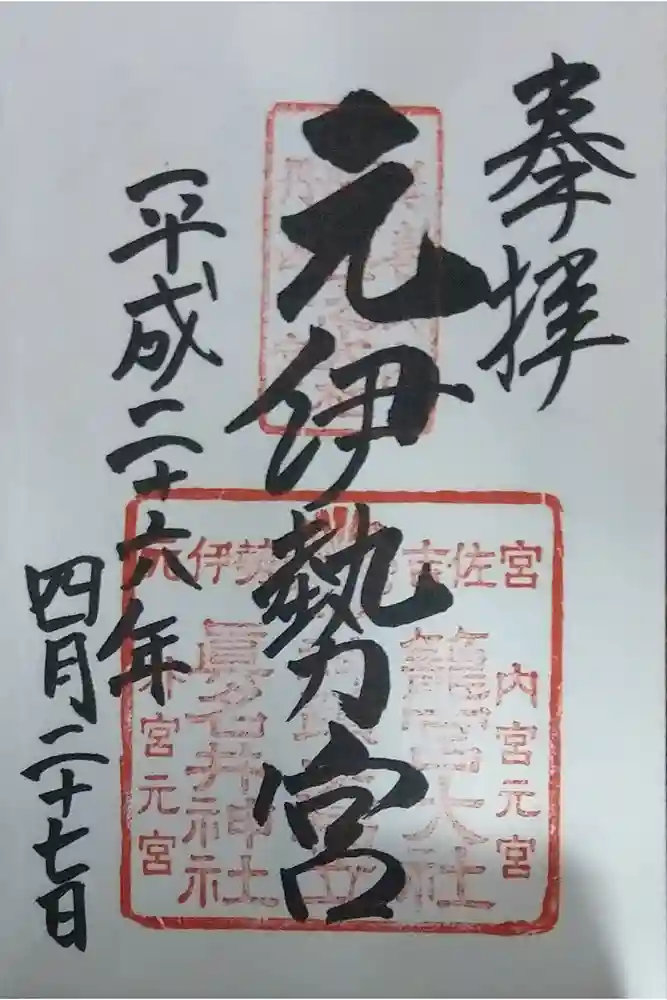 奉拝
元伊勢宮
平成二十六年
四月二十七日
宮佐吉
伊勢
内宮元宮
籠宮大社
眞名井神社
宮元宮